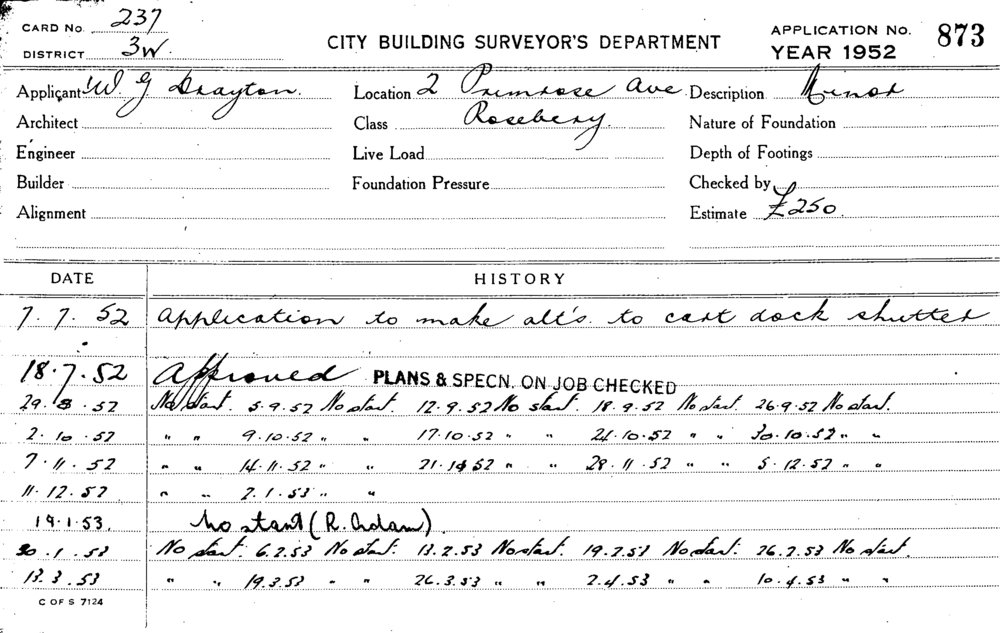 CARD No. 237
DISTRICT 3W.
CITY BUILDING SURVEYOR'S DEPARTMENT
APPLICATION No. 873
YEAR 1952
Applicant W G Drayton. Location 2 Primrose Ave Description Minor
Architect Class Rosebery. Nature of Foundation
Engineer Live Load Depth of Footings
Builder Foundation Pressure Checked by
Alignment Estimate £250.
DATE HISTORY
7. 7. 52 Application to make alt's. to cart dock shutter
18.7.52 Approved PLANS & SPECN. ON JOB CHECKED
29.8.52 No start. 5.9.52 No start. 12.9.52 No start. 18.9.52 No start. 26.9.52 No start.
2.10.52 " " 9.10.52 " " 17.10.52 " " 24.10.52 " " 30.10.52 " "
7.11.52 " " 14.11.52 " " 21.11.52 " " 28.11.52 " " 5.12.52 " "
11.12.52 " " 2.1.53 " "
19.1.53. No start (R. Adam)
30.1.53 No start. 6.2.53 No start. 13.2.53 No start. 19.2.53 No start. 26.2.53 No start.
13.3.53 " " 19.3.53 " " 26.3.53 " " 2.4.53 " " 10.4.53 " "
C OF S 7124